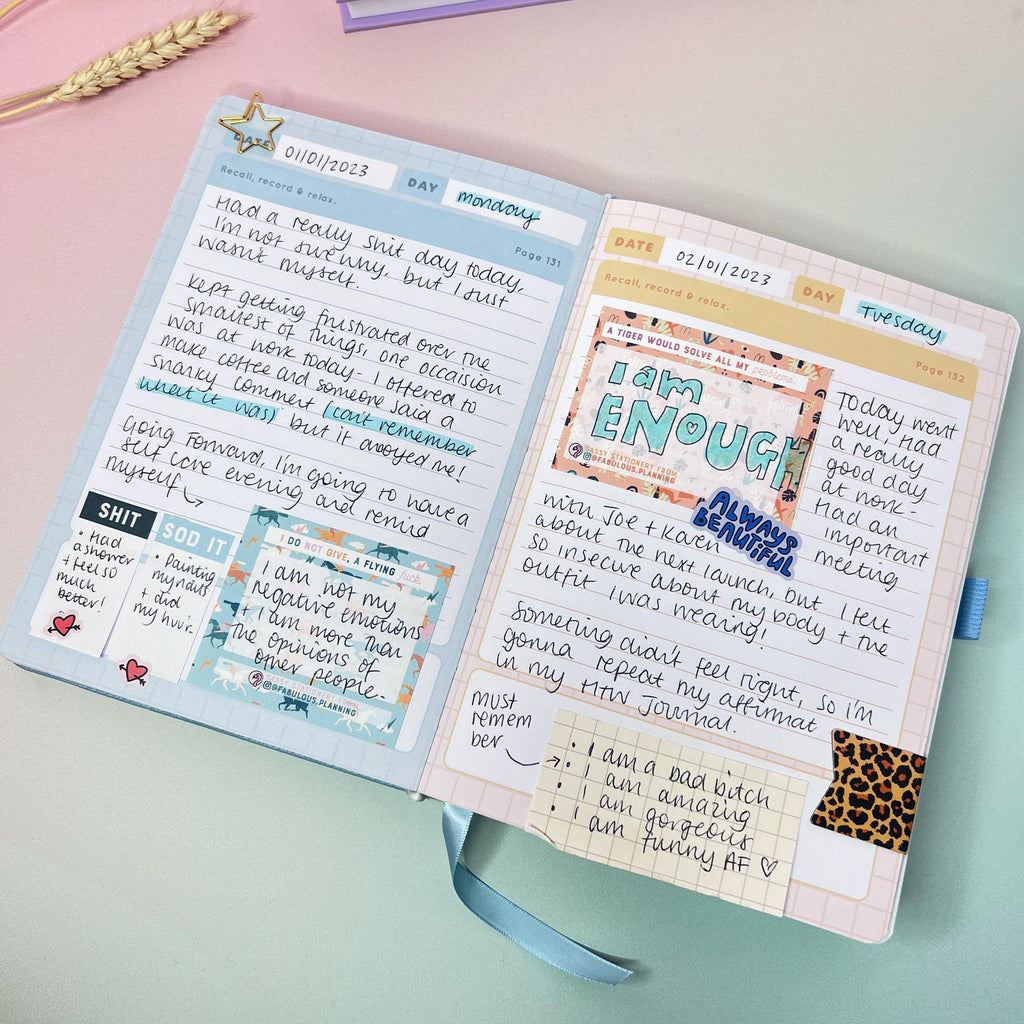 DATE 01/01/2023 DAY monday
Recall, record & relax.
Page 131
Had a really shit day today,
I'm not sure why. but I just
wasn't myself.
Kept getting frustrated over the
smallest of things, one occaision
was at work today - I offered to
make coffee and someone said a
snarky comment (can't remember
what it was) but it annoyed me!
Going forward, I'm going to have a
self care evening and remind
myself
SHIT
• Had
a shower
+ feel so
much
better!
SOD IT
• Painting
my nails
+ did
my hair.
I DO NOT GIVE, A FLYING fuck.
I am not my
negative emotions
+ I am more than
the opinions of
other people.
SASSY STATIONERY FROM
@FABULOUS.PLANNING
DATE 02/01/2023 DAY Tuesday
Recall, record & relax.
Page 132
A TIGER WOULD SOLVE ALL MY problems.
I am
ENOUGH
SASSY STATIONERY FROM
@FABULOUS.PLANNING
ALWAYS
BEAUTIFUL
Today went
well, Had
a really
good day
at work -
Had an
important
meeting
with Joe + Karen
about the next launch, but I felt
so insecure about my body + the
outfit I was wearing!
Someting didn't feel right, so i'm
gonna repeat my affirmat
in my MTW Journal.
must
remem
ber
• I am a bad bitch
• I am amazing
• I am gorgeous
• I am funny AF